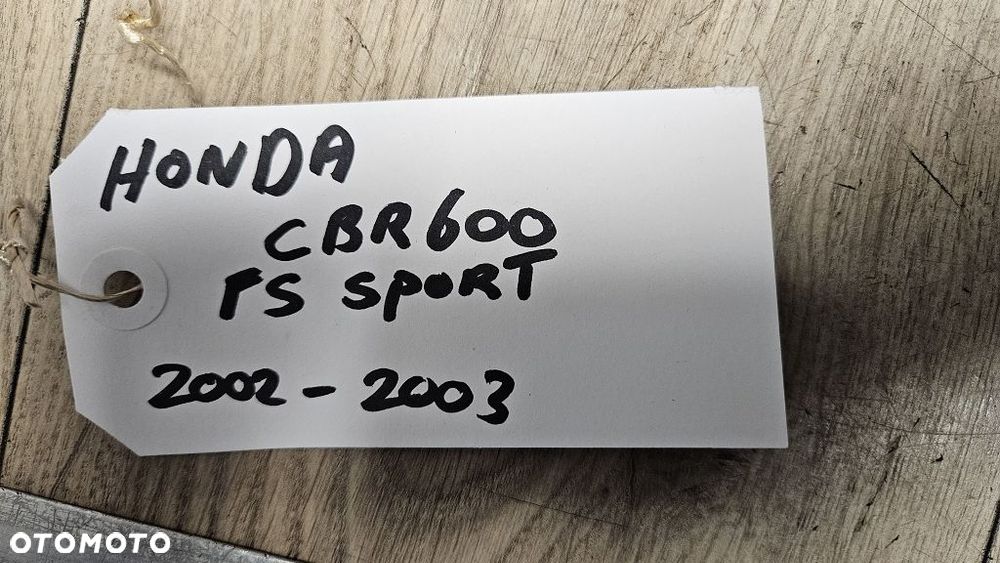 HONDA
CBR600
FS SPORT
2002 - 2003
OTOMOTO